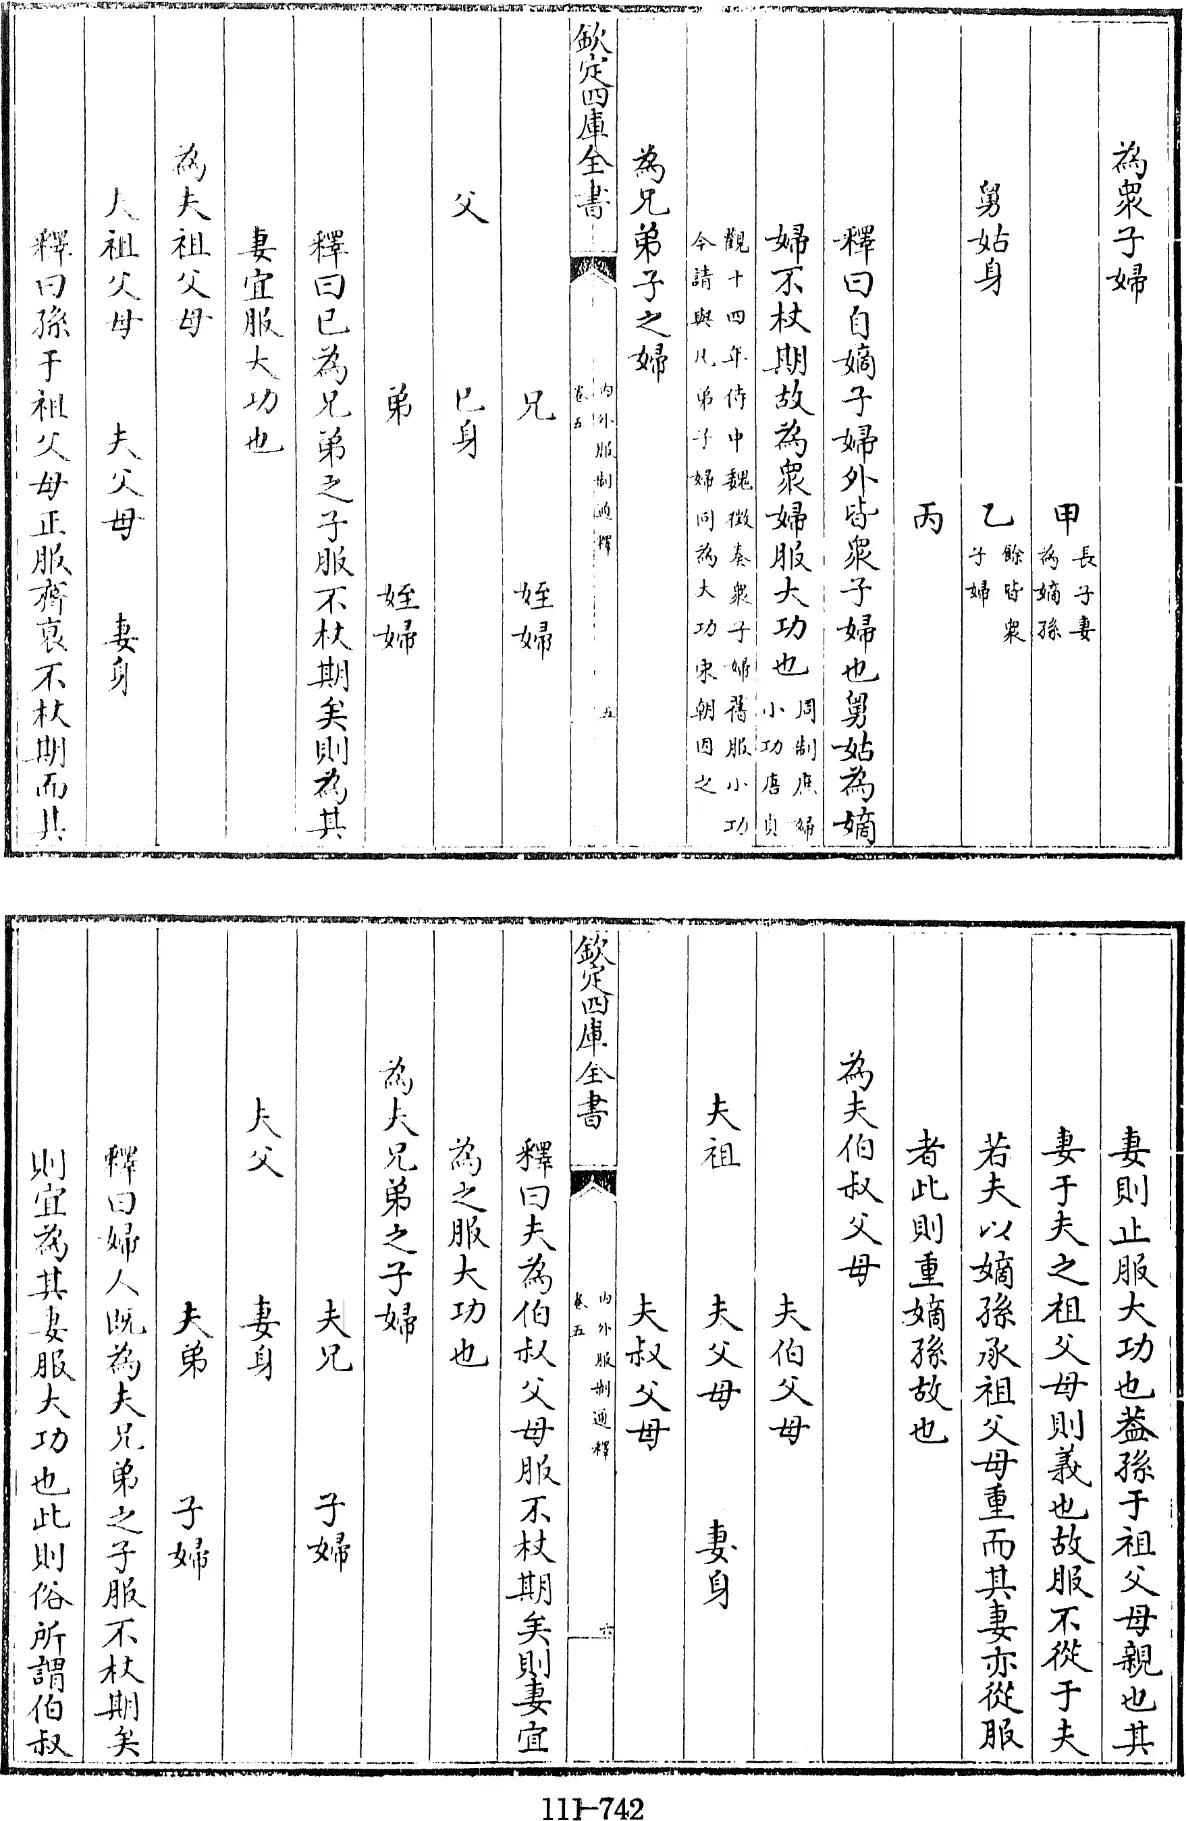 為衆子婦
甲 長子妻為嫡孫
舅姑身 乙 餘皆衆子婦
丙
釋曰自嫡子婦外皆衆子婦也舅姑為嫡
婦不杖期故為衆婦服大功也 周制庶婦小功唐貞
觀十四年侍中魏徵奏衆子婦舊服小功
今請與兄弟子婦同為大功宋朝因之
為兄弟子之婦
欽定四庫全書
內外服制通釋
卷五
五
兄 姪婦
父 已身
弟 姪婦
釋曰已為兄弟之子服不杖期矣則為其
妻宜服大功也
為夫祖父母
夫祖父母 夫父母 妻身
釋曰孫于祖父母正服齊衰不杖期而其
妻則止服大功也蓋孫于祖父母親也其
妻于夫之祖父母則義也故服不從于夫
若夫以嫡孫承祖父母重而其妻亦從服
者此則重嫡孫故也
為夫伯叔父母
夫伯父母
夫祖 夫父母 妻身
夫叔父母
欽定四庫全書
內外服制通釋
卷五
六
釋曰夫為伯叔父母服不杖期矣則妻宜
為之服大功也
為夫兄弟之子婦
夫兄 子婦
夫父 妻身
夫弟 子婦
釋曰婦人既為夫兄弟之子服不杖期矣
則宜為其妻服大功也此則俗所謂伯叔
111-742